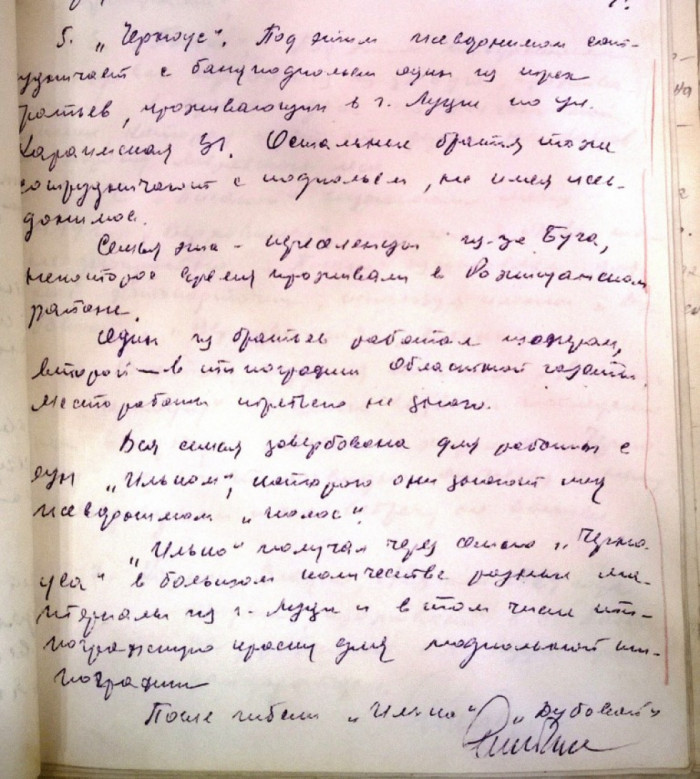 5. „Черноус“. Под этим псевдонимом сот-
рудничает с бандподпольем один из трех
братьев, проживающих в г. Луцке по ул.
Караимская 31. Остальные братья тоже
сотрудничают с подпольем, не имея псев-
донимов.
Семья эта - переселенцы из-за Буга,
некоторое время проживали в Рожищанском
районе.
Один из братьев работал шофером,
второй — в типографии областной газеты.
Место работы третьего не знаю.
Вся семья завербована для работы с
„Ильком“, которого они знают под
псевдонимом „Колос“.
„Илько“ получал через семью „Черно-
уса“ в большом количестве разные ма-
териалы из г. Луцка и в том числе ти-
пографскую краску для подпольной ти-
пографии
После гибели „Илька“ „Дубовой“